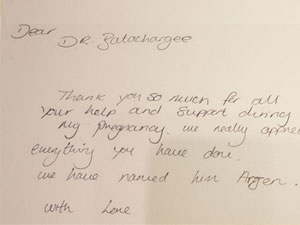 Dear
DR. Batachargee
Thank you so much for all
your help and support during
my pregnancy. we really apprec
everything you have done.
we have named him Argen.
with love